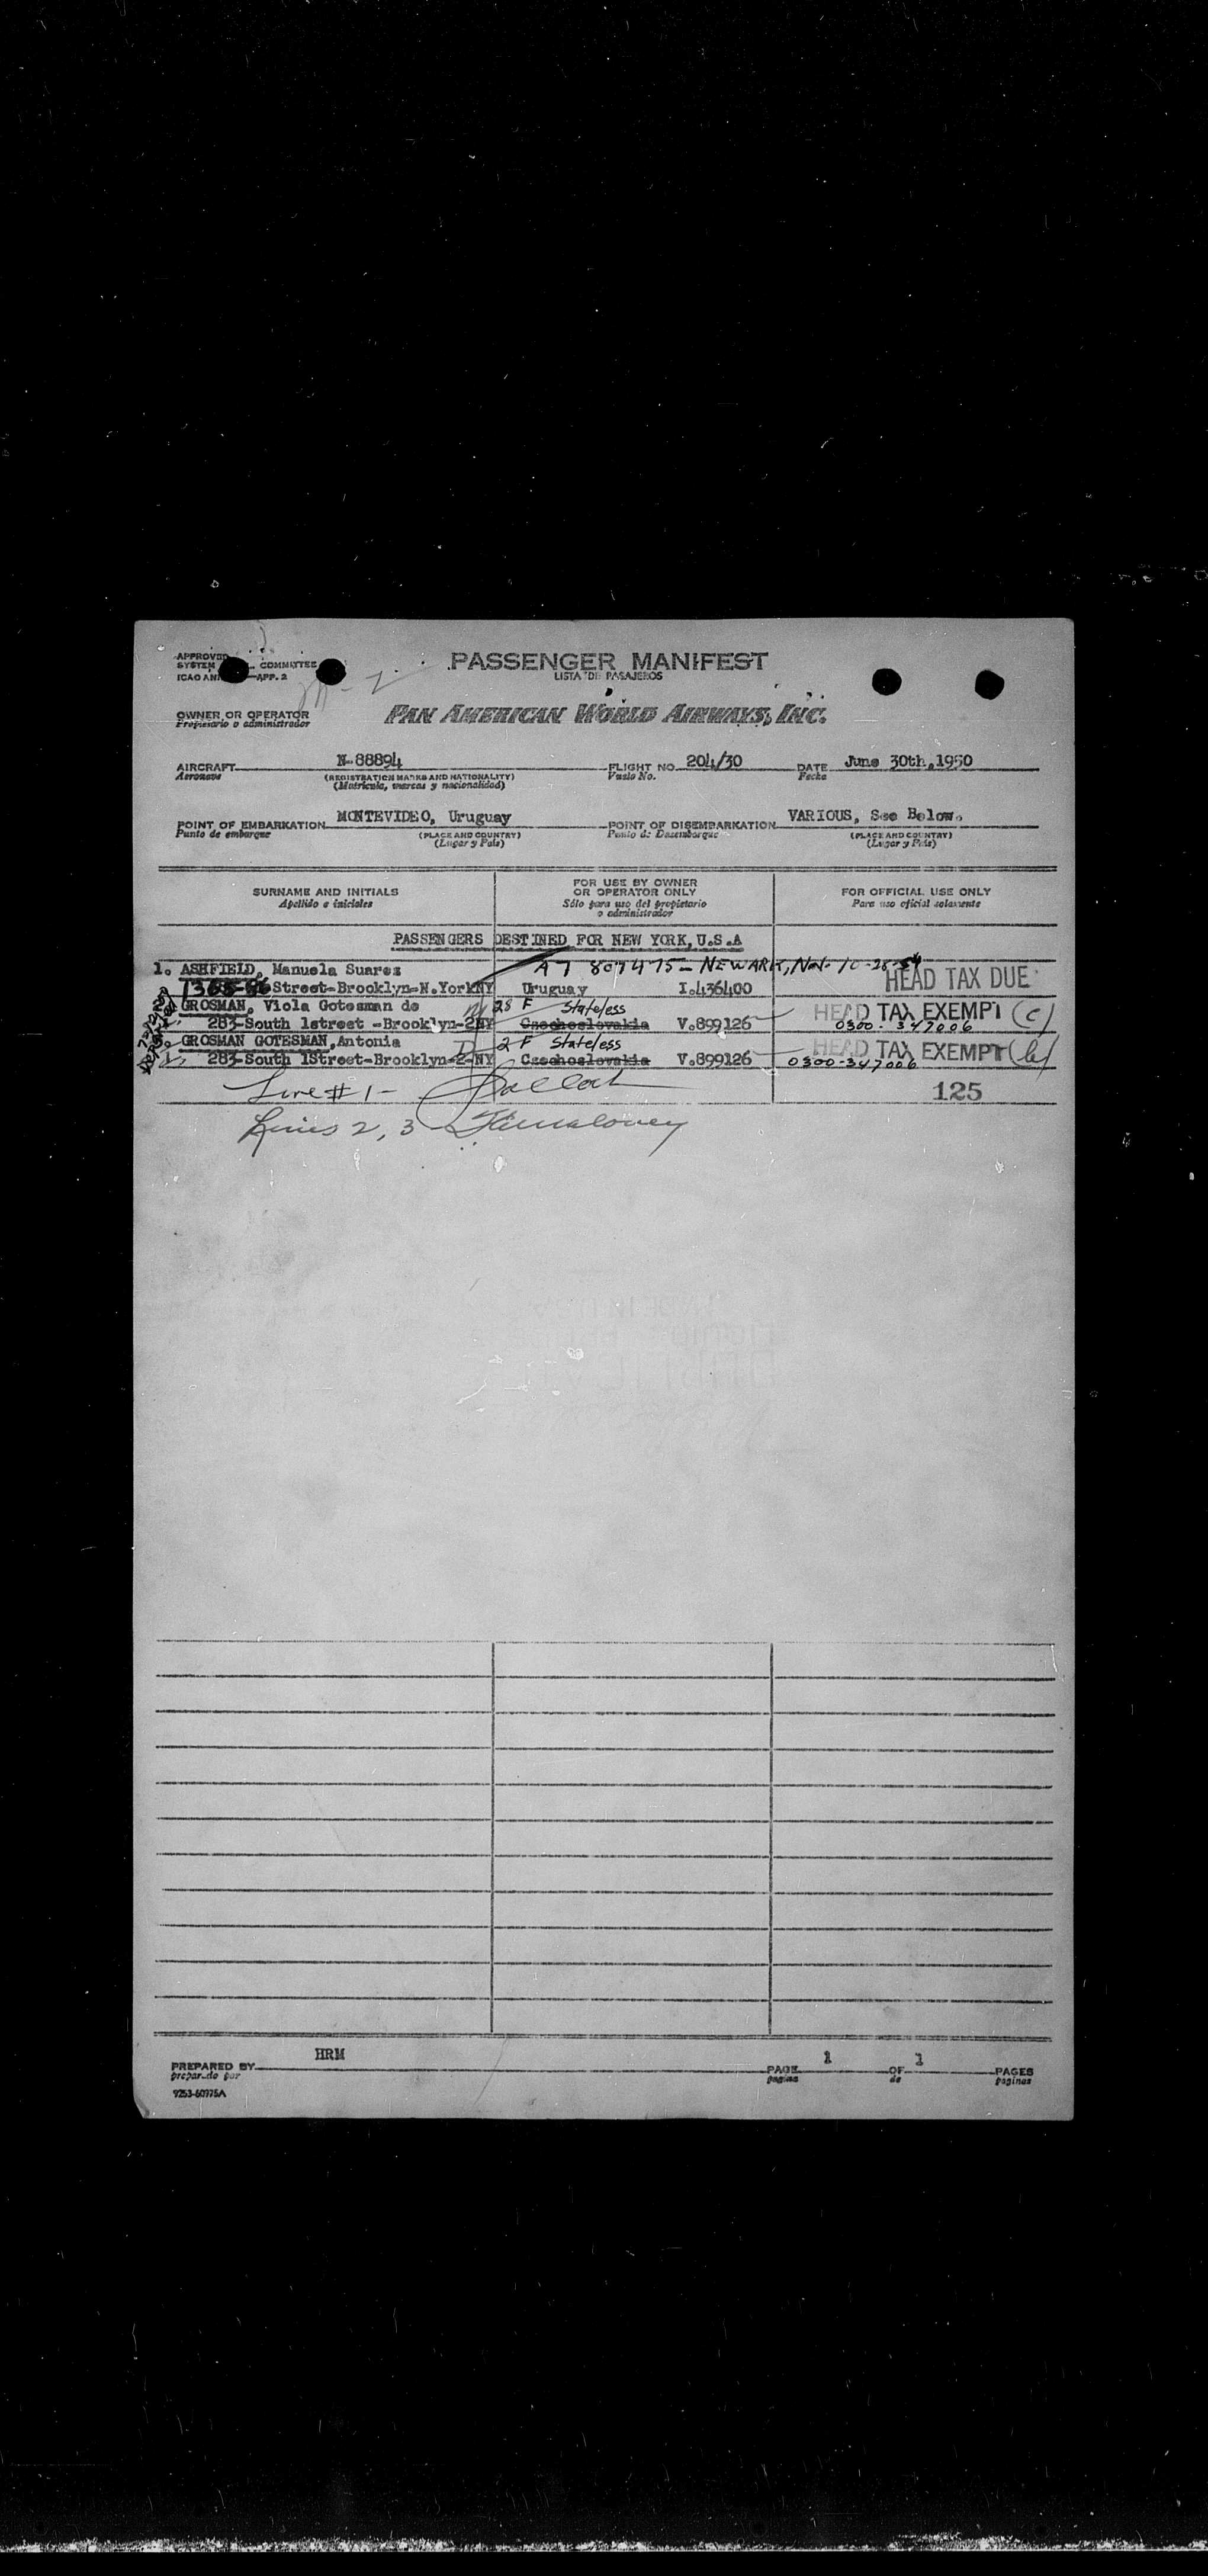 APPROVED
SYSTEM COMMITTEE
ICAO APP. 2
PASSENGER MANIFEST
LISTA DE PASAJEROS
OWNER OR OPERATOR
Propietario o administrador
PAN AMERICAN WORLD AIRWAYS, INC.
AIRCRAFT N-88894 FLIGHT NO. 204/30 DATE June 30th,1950
Aeronave (REGISTRATION MARKS AND NATIONALITY) Vuelo No. Fecha
(Matricula, marcas y nacionalidad)
POINT OF EMBARKATION MONTEVIDEO, Uruguay POINT OF DISEMBARKATION VARIOUS, See Below.
Punto de embarque (PLACE AND COUNTRY) Punto de Desembarque (PLACE AND COUNTRY)
(Lugar y Pais) (Lugar y Pais)
SURNAME AND INITIALS FOR USE BY OWNER OR OPERATOR ONLY FOR OFFICIAL USE ONLY
Apellido e iniciales Sólo para uso del propietario o administrador Para uso oficial solamente
PASSENGERS DESTINED FOR NEW YORK, U.S.A
1. ASHFIELD, Manuela Suarez A7 807475 - NEWARK, 10-28-54
Street-Brooklyn-N.York NY Uruguay I.436400 HEAD TAX DUE
GROSMAN, Viola Gotesman de 28 F Stateless HEAD TAX EXEMPT (c)
283-South 1street -Brooklyn-2NY Czechoslovakia V.899126 0300-347006
GROSMAN GOTESMAN, Antonia 2 F Stateless HEAD TAX EXEMPT (b)
283-South 1Street-Brooklyn-2-NY Czechoslovakia V.899126 0300-347006
Line #1- 125
Lines 2, 3
PREPARED BY HRM PAGE 1 OF 1 PAGES
preparado por pagina de paginas
9253-60775A